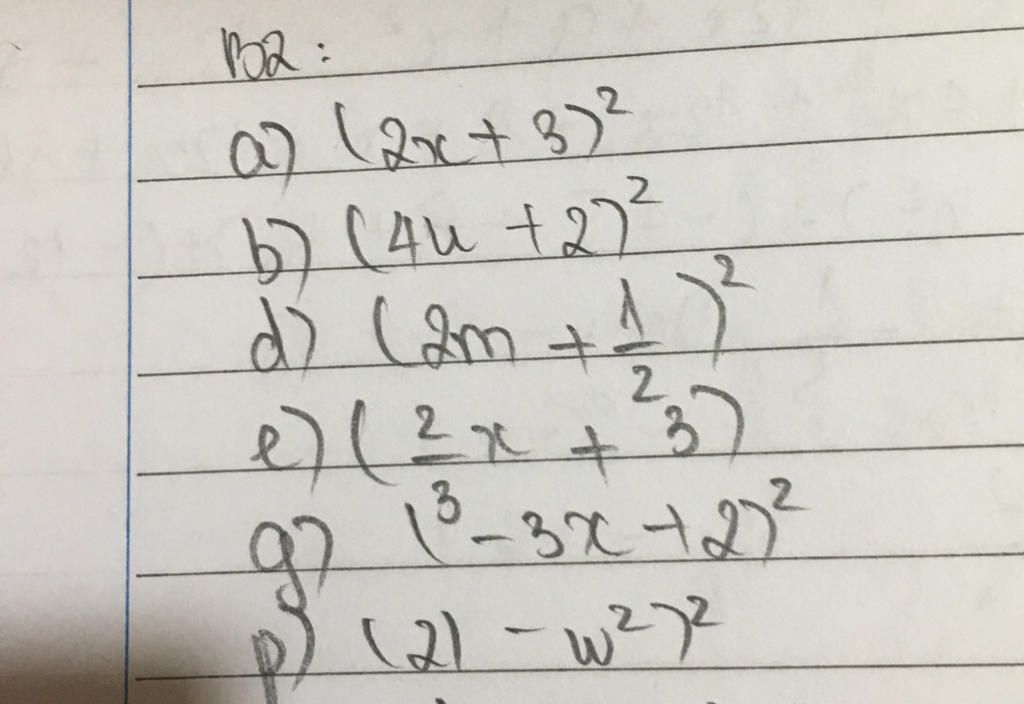 B2:
a) (2x + 3)²
b) (4u + 2)²
d) (2m + 1/2)²
e) (2/3 x + 3)
g) (-3x + 2)²
p) (21 - w²)²